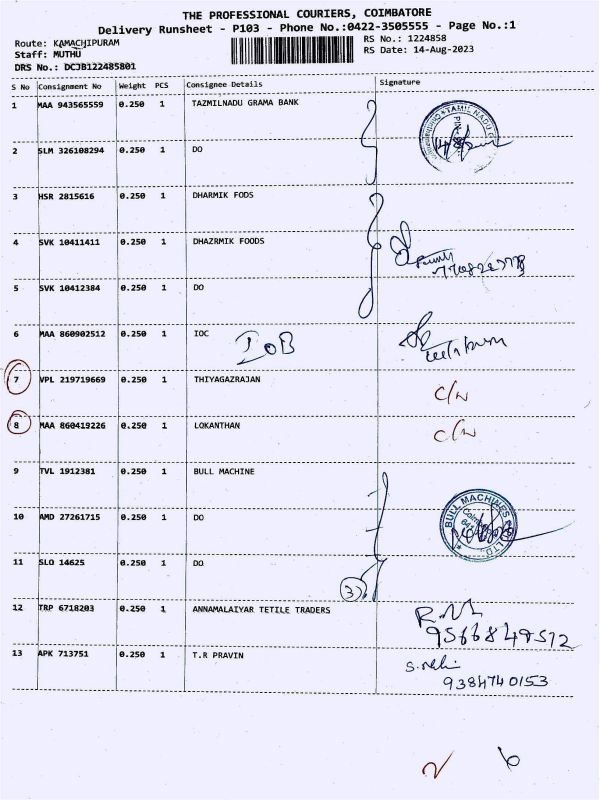 THE PROFESSIONAL COURIERS, COIMBATORE
Delivery Runsheet - P103 - Phone No.:0422-3505555 - Page No.:1
Route: KAMACHIPURAM RS No.: 1224858
Staff: MUTHU RS Date: 14-Aug-2023
DRS No.: DCJB122485801
S No Consignment No Weight PCS Consignee Details Signature
1 MAA 943565559 0.250 1 TAZMILNADU GRAMA BANK
2 SLM 326108294 0.250 1 DO
3 HSR 2815616 0.250 1 DHARMIK FODS
4 SVK 10411411 0.250 1 DHAZRMIK FOODS
5 SVK 10412384 0.250 1 DO
6 MAA 860902512 0.250 1 IOC IOB
7 VPL 219719669 0.250 1 THIYAGAZRAJAN C/N
8 MAA 860419226 0.250 1 LOKANTHAN C/N
9 TVL 1912381 0.250 1 BULL MACHINE
BULL MACHINES
10 AMD 27261715 0.250 1 DO
11 SLO 14625 0.250 1 DO
3
12 TRP 6718203 0.250 1 ANNAMALAIYAR TETILE TRADERS
9566849512
13 APK 713751 0.250 1 T.R PRAVIN
9384740153
2 6